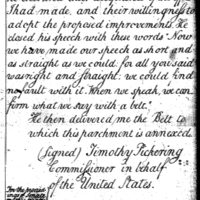 had made, and their willingness to
adopt the proposed improvements. He
closed his speech with these words "Now
we have made our speech as short and
as straight as we could for all you said
was right and straight: we could find
no fault with it. When we speak, we can
firm what we say with a belt."
He then delivered me the Belt to
which this parchment is annexed
(Signed) Timothy Pickering
Commissioner in behalf
of the United States.
For the